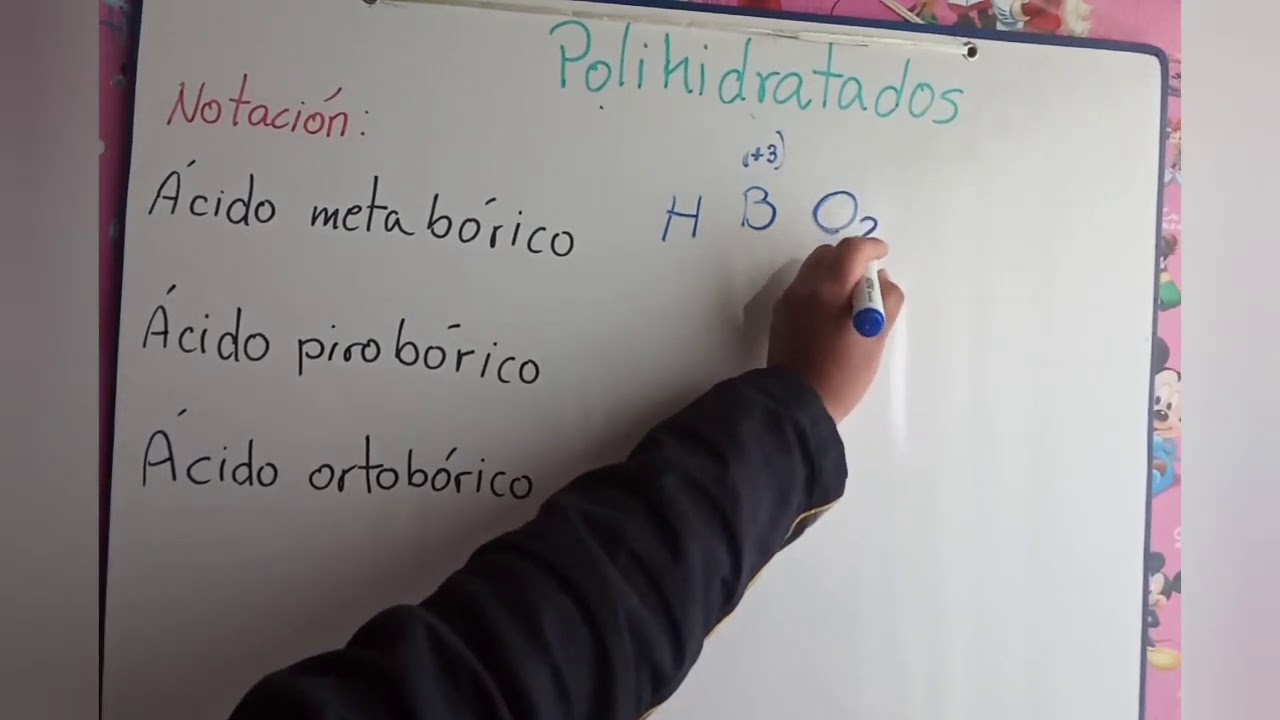 Polihidratados
Notación:
(+3)
Ácido metabórico H B O2
Ácido pirobórico
Ácido ortobórico